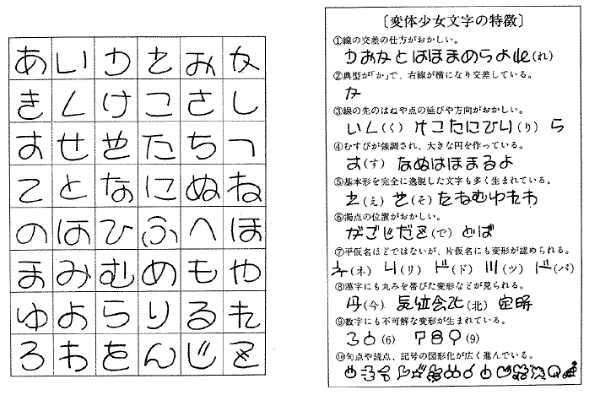 あいうえおか
きくけこさし
すせそたちつ
てとなにぬね
のはひふへほ
まみむめもや
ゆよらりるれ
ろわをんじで
〔変体少女文字の特徴〕
①線の交差の仕方がおかしい。
かおなとはほまめらよ(れ)
②典型が「か」で、右線が横になり交差している。
か
③線の先のはねや点の延びや方向がおかしい。
いく(く)けこたにひり(り)ら
④むすびが強調され、大きな円を作っている。
す(す)なぬはほまるよ
⑤基本形を完全に逸脱した文字も多く生まれている。
え(え)そ(そ)たねむゆれわ
⑥濁点の位置がおかしい。
がごじだで(で)どば
⑦平仮名ほどではないが、片仮名にも変形が認められる。
ネ(ネ)リ(リ)ド(ド)ツ(ツ)パ(パ)
⑧漢字にも丸みを帯びた変形などが見られる。
今(今)気位会北(北)
⑨数字にも不可解な変形が生まれている。
36(6)789(9)
⑩句点や読点、記号の図形化が広く進んでいる。